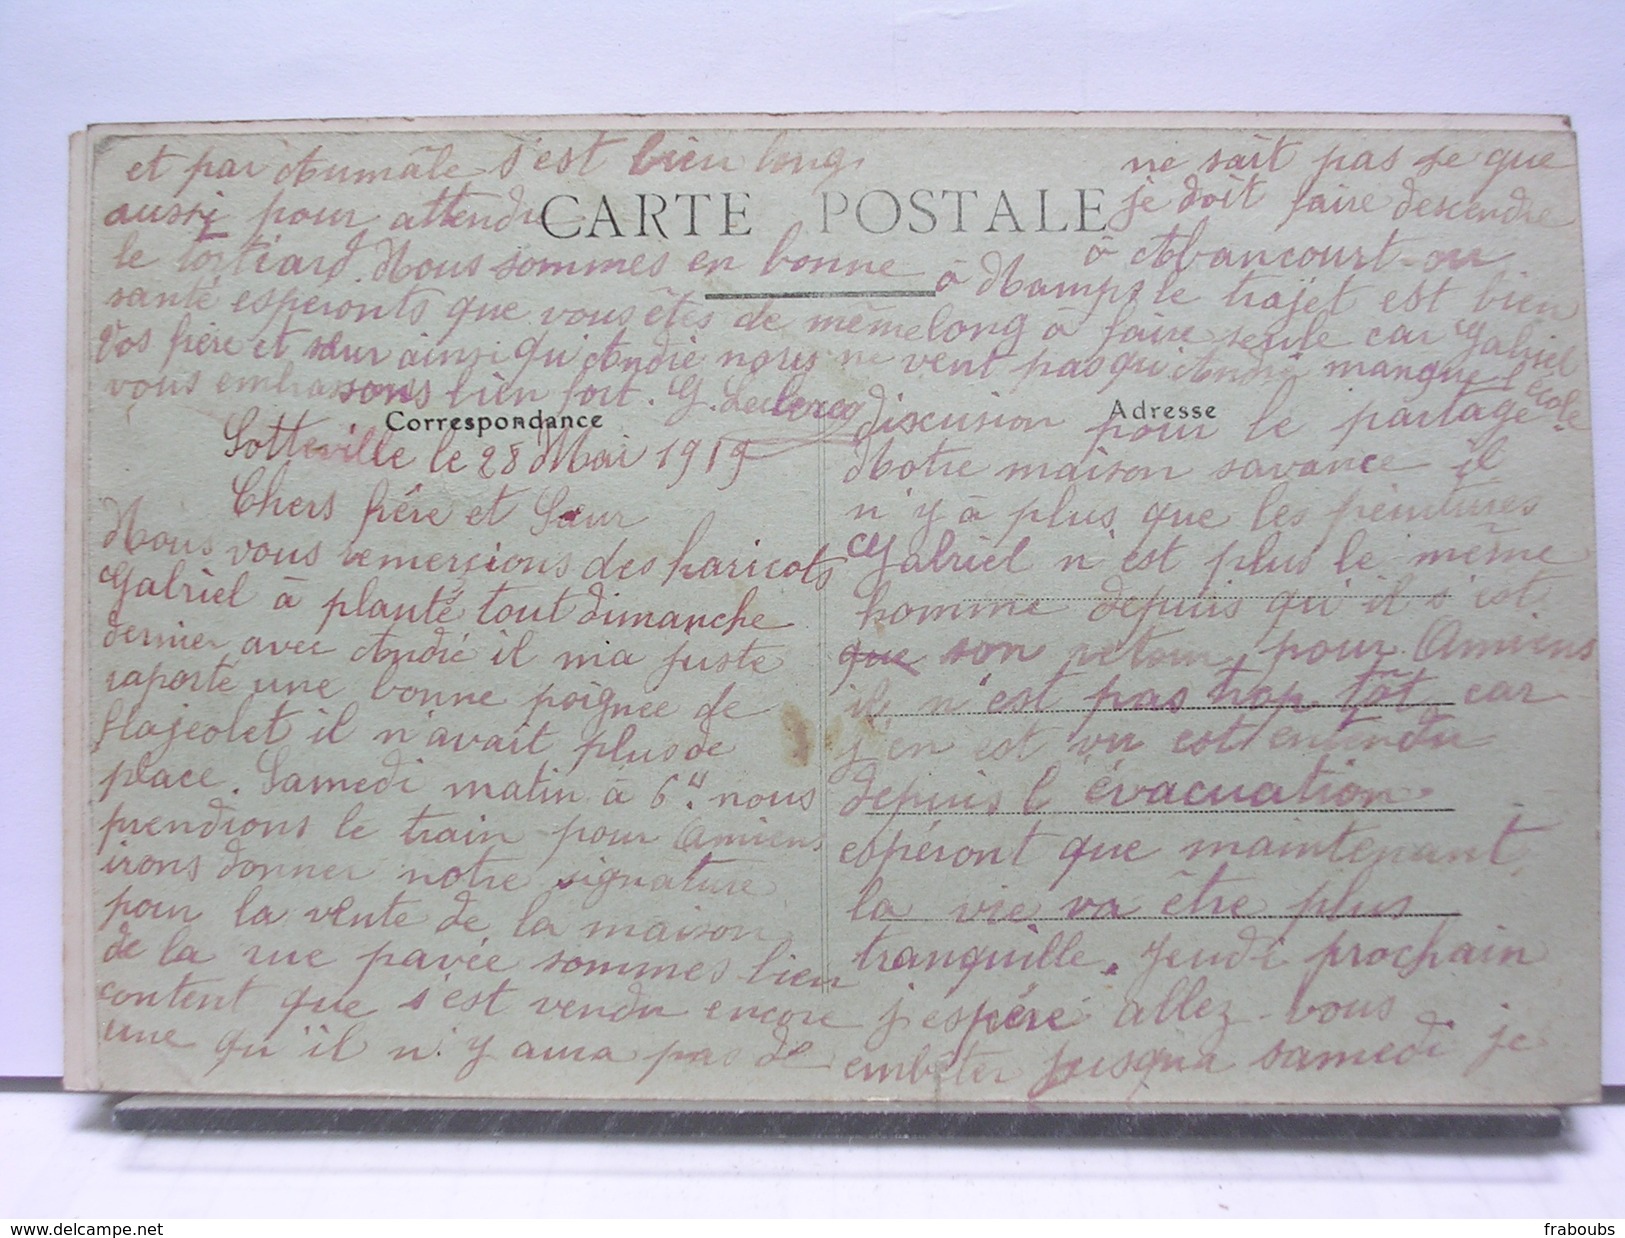 CARTE POSTALE
Correspondance
Adresse
Sotteville le 28 Mai 1919
Chers frère et Sœur
Nous vous remerçions des haricots
Gabriel à planté tout dimanche
dernier avec André il m'a juste
raporté une bonne poignee de
flajeolet il n'avait plus de
place. Samedi matin à 6h. nous
prendrons le train pour Amiens
irons donner notre signature
pour la vente de la maison
de la rue pavée sommes bien
content que s'est vendu encore
une qu'il n'y aura pas de
discusion pour le partage
Notre maison savance il
n'y à plus que les peintures
Gabriel n'est plus le même
homme depuis qu'il s'est
que son retour pour Amiens
il n'est pas trop tôt car
j'en est vu est entendu
depuis l'évacuation
espéront que maintenant
la vie va être plus
tranquille. Jeudi prochain
j'espére allez-vous
embêter jusqua samedi je
ne sait pas se que
je doit faire descendre
à Abancourt ou
à Namps le trajet est bien
long à faire seule car Gabriel
ne vent pas qui André manque l'école
et par Aumâle s'est bien long
aussi pour attendre
le tortiard. Nous sommes en bonne
santé esperonts que vous êtes de même
Vos frère et sœur ainsi qui André nous
vous embrassons bien fort. G. Leclercq
fraboubs